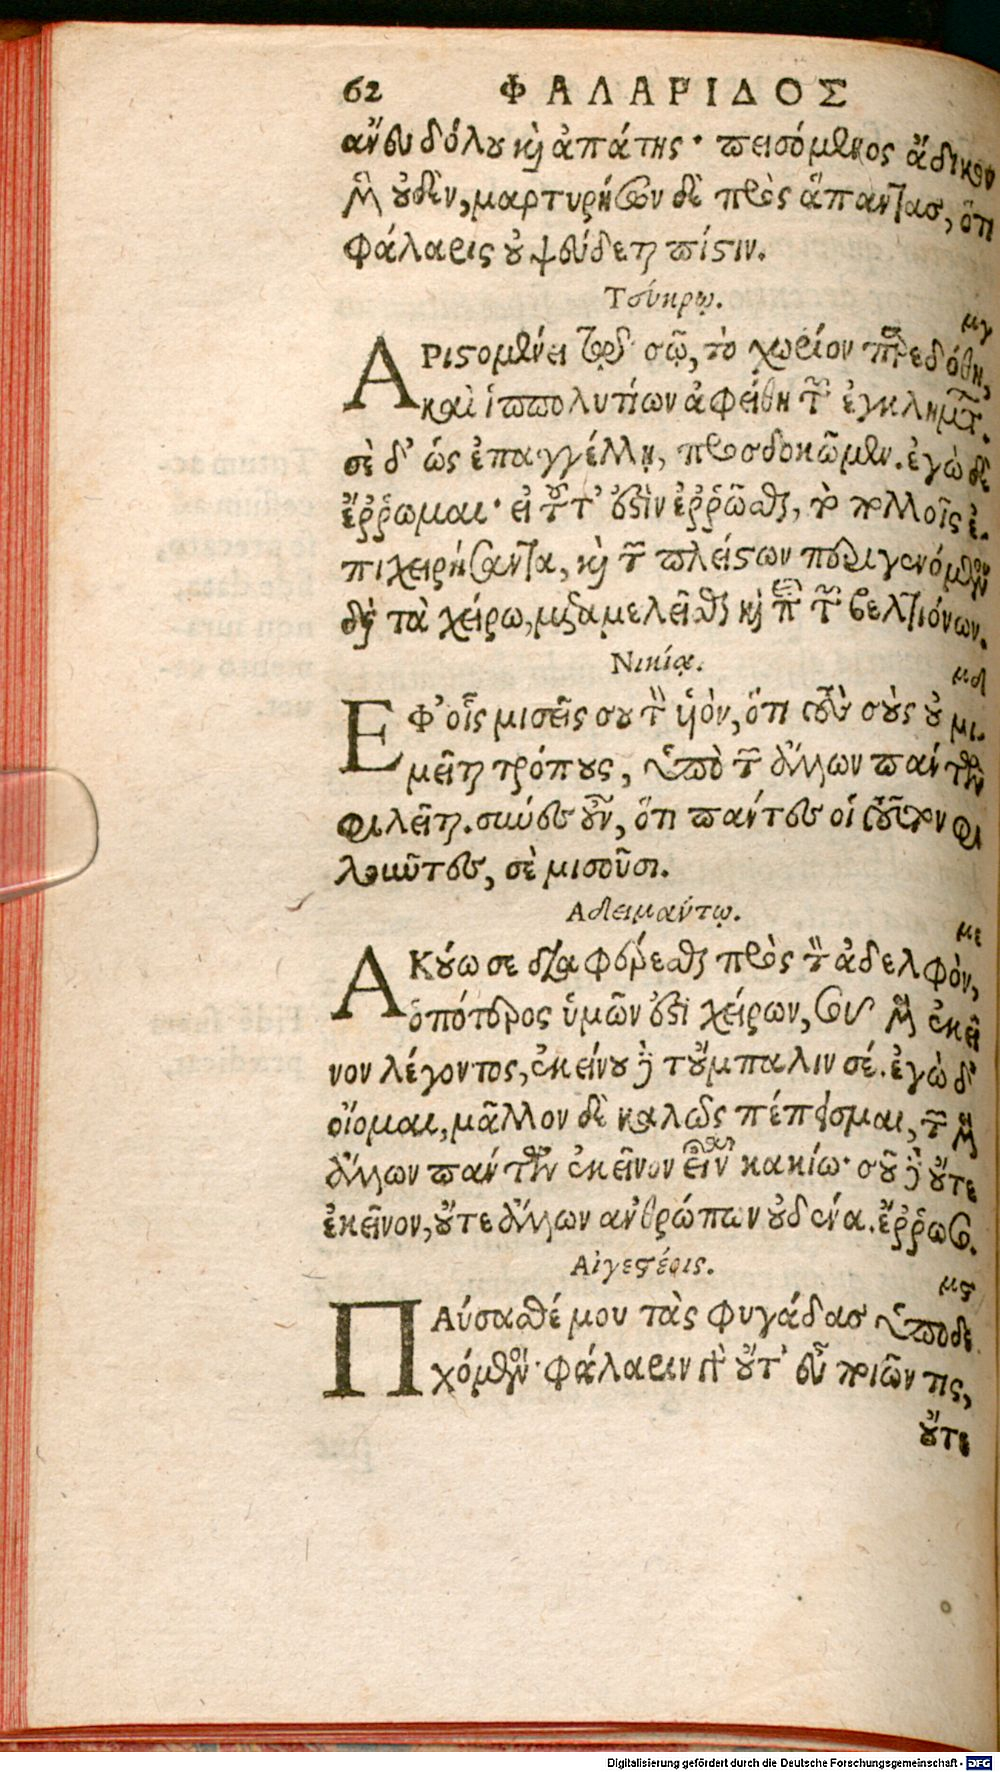 62 ΦΑΛΑΡΙΔΟΣ
ἄνευ δόλου καὶ ἀπάτης· πεισόμενος ἄδικον
μὲν οὐδὲν, μαρτυρήσων δὲ πρὸς ἅπαντας, ὅτι
Φάλαρις οὐ ψεύδεται πίστιν.
Τεύκρῳ. μγ
ΑΡιστομένει παρὰ σοῦ, τὸ χωρίον παρεδόθη,
καὶ ἱππολυτίων ἀφείθη τῶν ἐγκλημάτων.
σὲ δ' ὡς ἐπαγγέλλῃ, προσδοκῶμεν. ἐγὼ δὲ
ἔῤῥωμαι· εἰ τοῦτ' ἐστὶν ἐῤῥῶσθαι, τὸ πολλοῖς ἐ-
πιχειρήσαντα, καὶ τῶν πλείστων περιγενόμενον
διὰ τὰ χείρω, μεταμελεῖσθαι καὶ ἐπὶ τῶν βελτιόνων.
Νικίᾳ. μδ
ΕΦ' οἷς μισεῖς σου τὸν υἱὸν, ὅτι τοὺς σοὺς οὐ μι-
μεῖται τρόπους, ὑπὸ τῶν ἄλλων πάντων
φιλεῖται. σκύες οὖν, ὅτι πάντες οἱ τοῦτον φι
λοῦντες, σὲ μισοῦσι.
Αδειμάντῳ. με
ΑΚούω σε διαφέρεσθαι πρὸς τὸν ἀδελφὸν,
ὁπότερος ὑμῶν ἐστὶ χείρων, σοῦ μὲν ἐκεῖ
νον λέγοντος, ἐκείνου δὲ τοὔμπαλιν σέ. ἐγὼ δ'
οἴομαι, μᾶλλον δὲ καλῶς πέπεισμαι, τῶν μὲν
ἄλλων πάντων ἐκεῖνον εἶναι κακίω· σοῦ δὲ οὔτε
ἐκεῖνον, οὔτε ἄλλων ἀνθρώπων οὐδένα. ἔῤῥωσο.
Αἰγεστέοις. μϛ
ΠΑύσασθέ μου τὰς φυγάδας ὑποδε
χόμενοι· Φάλαριν γὰρ οὔτ' εὖ ποιῶν τις,
οὔτε